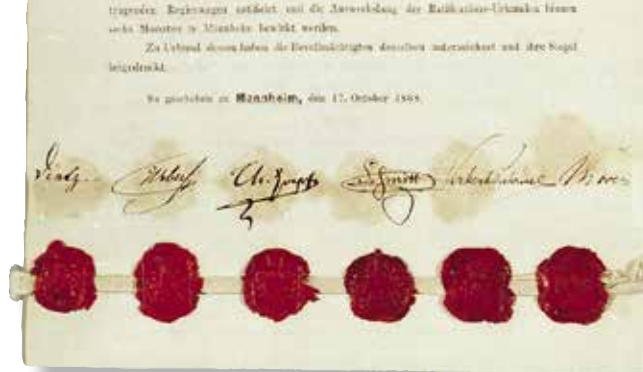 tragenden Regierungen ratifizirt und die Auswechslung der Ratifikations-Urkunden binnen
sechs Monaten in Mannheim bewirkt werden.
Zu Urkund dessen haben die Bevollmächtigten denselben unterzeichnet und ihre Siegel
beigedruckt.
So geschehen zu Mannheim, den 17. October 1868.
Dietz. Chr. Schmitt